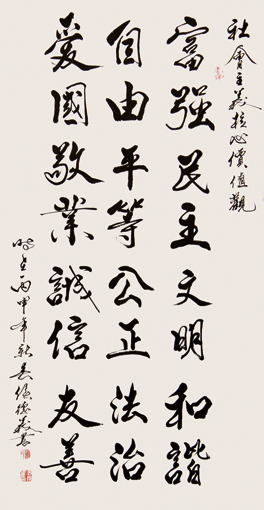 社會主義核心價值觀
富强民主文明和諧
自由平等公正法治
愛國敬業誠信友善
時在丙申年秋